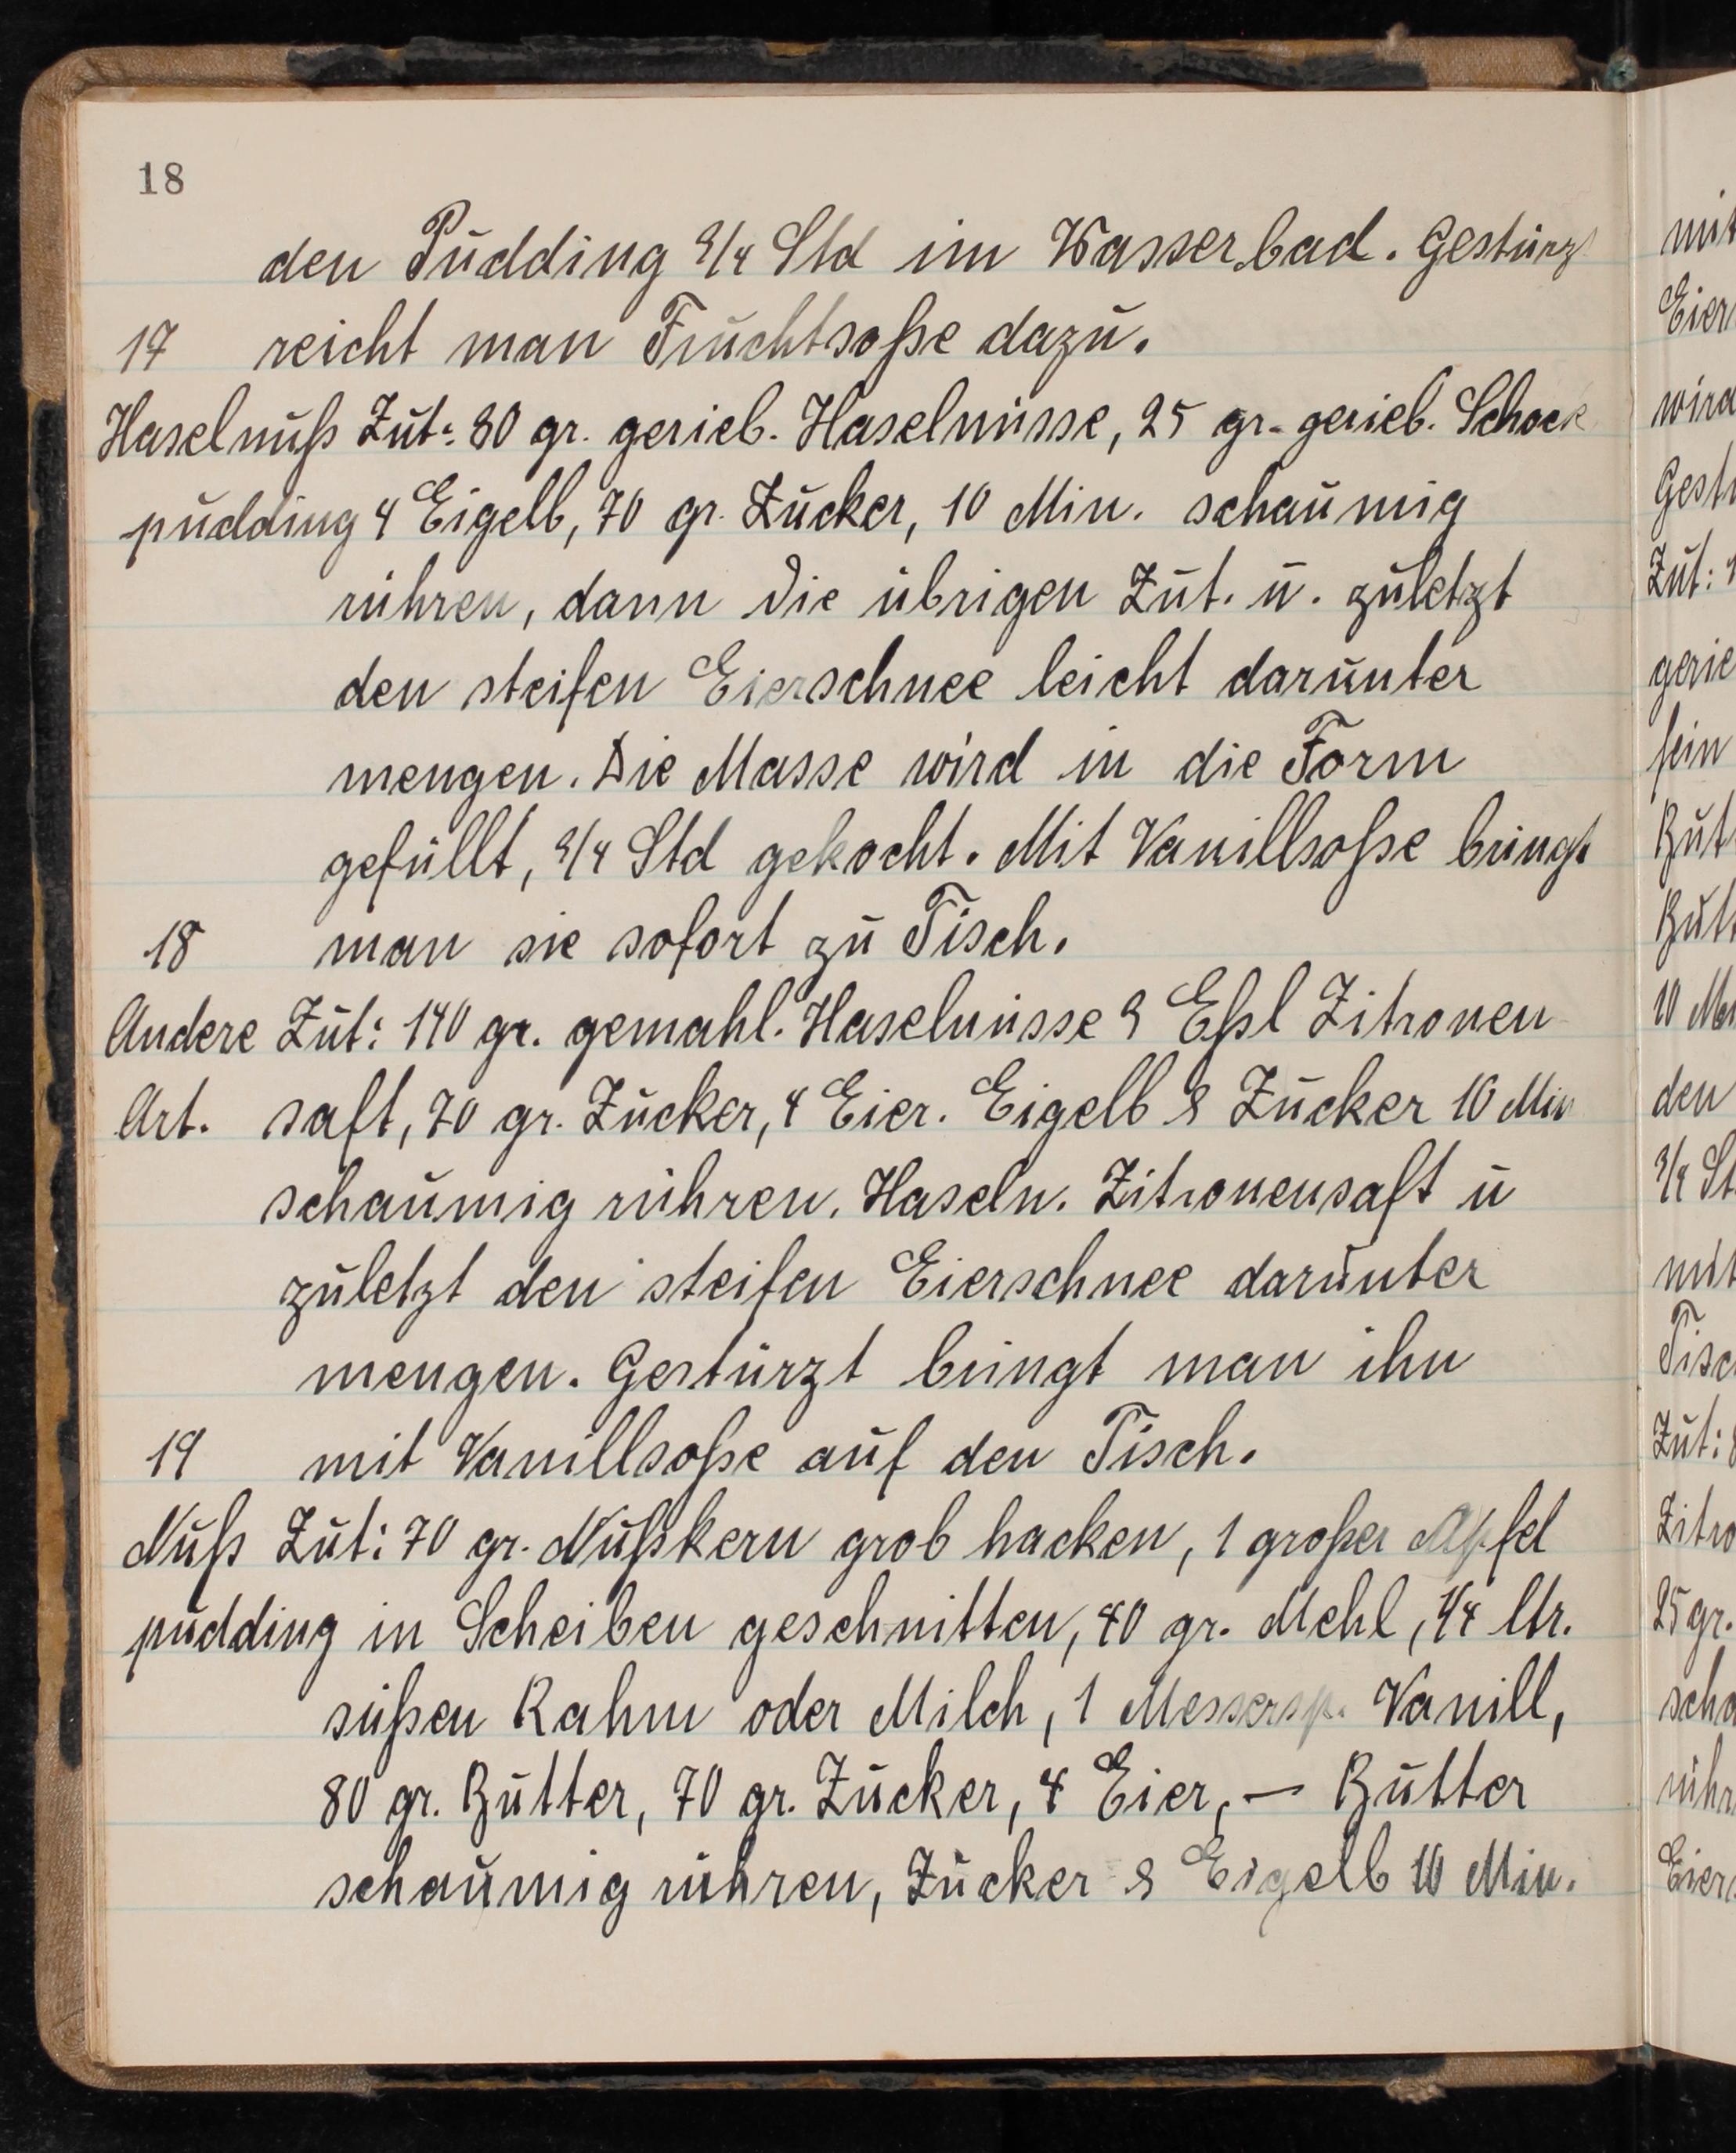 18
den Pudding 3/4 Std im Wasserbad. Gestürzt
17 reicht man Fruchtsoße dazu.
Haselnuß Zut: 80 gr. gerieb. Haselnüsse, 25 gr. gerieb. Schock
pudding 4 Eigelb, 70 gr. Zucker, 10 Min. schaumig
rühren, dann die übrigen Zut. u. zuletzt
den steifen Eierschnee leicht darunter
mengen. Die Masse wird in die Form
gefüllt, 3/4 Std gekocht. Mit Vanillsoße bringt
18 man sie sofort zu Tisch.
Andere Zut: 140 gr. gemahl. Haselnüsse 3 Eßl Zitronen-
Art. saft, 70 gr. Zucker, 4 Eier. Eigelb & Zucker 10 Min
schaumig rühren. Haseln. Zitronensaft u
zuletzt den steifen Eierschnee darunter
mengen. Gestürzt bringt man ihn
19 mit Vanillsoße auf den Tisch.
Nuß Zut: 70 gr. Nußkern grob hacken, 1 großer Apfel
pudding in Scheiben geschnitten, 40 gr. Mehl, 1/4 ltr.
süßen Rahm oder Milch, 1 Messersp. Vanill,
80 gr. Butter, 70 gr. Zucker, 4 Eier, — Butter
schaumig rühren, Zucker & Eigelb 10 Min.
mit
Eier
wird
Gest
Zut:
gerie
fein
But
But
10 Min
den
3/4 St
mit
Tisc
Zut: 8
Zitro
25 gr.
scha
rühr
Eier